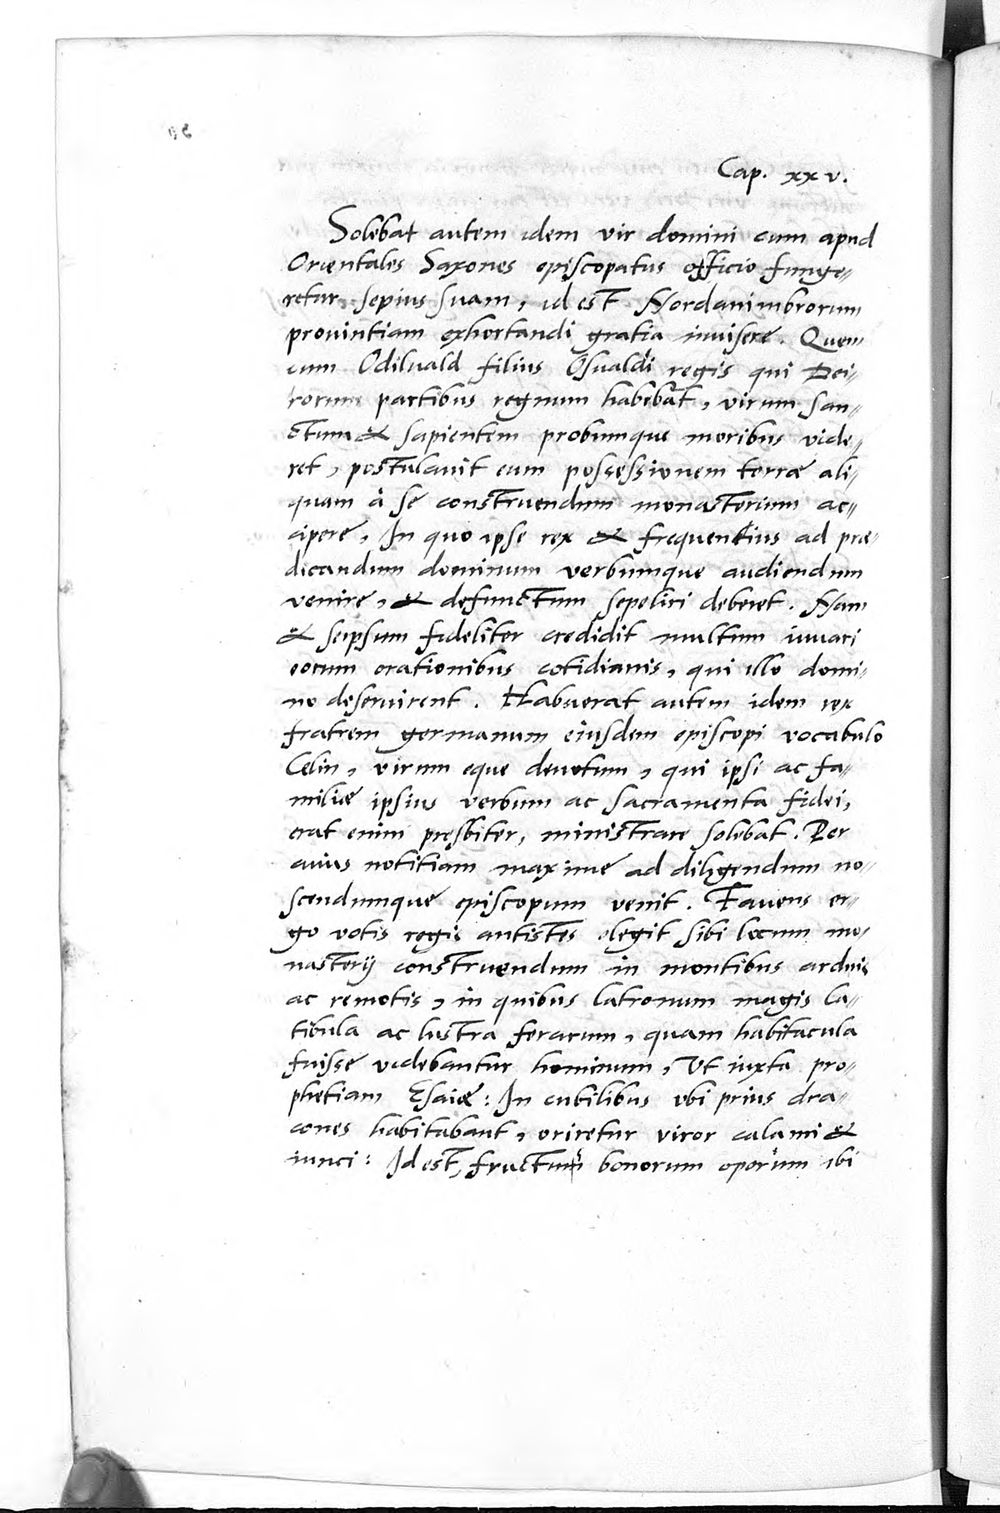 Cap. xxv.
Solebat autem idem vir domini cum apud
Orientales Saxones episcopatus officio funge=
retur sepius suam, id est Nordanimbrorum
provintiam exhortandi gratia invisere. Quem
cum Odiluald filius Osualdi regis qui Dei=
rorum partibus regnum habebat, virum san=
ctum & sapientem probumque moribus vide=
ret, postulavit eum possessionem terræ ali=
quam à se construendum monasterium ac=
cipere, In quo ipse rex & frequentius ad præ=
dicandum dominum verbumque audiendum
venire, & defunctum sepeliri deberet. Nam
& seipsum fideliter credidit multum iuvari
eorum orationibus cotidianis, qui illo domi=
no deservirent. Habuerat autem idem rex
fratrem germanum eiusdem episcopi vocabulo
Celin, virum eque devotum, qui ipsi ac fa=
miliæ ipsius verbum ac sacramenta fidei,
erat enim presbiter, ministrare solebat. Per
cuius notitiam maxime ad diligendum no=
scendumque episcopum venit. Favens er=
go votis regis antistes elegit sibi locum mo=
nasterij construendum in montibus arduis
ac remotis, in quibus latronum magis la=
tibula ac lustra ferarum, quam habitacula
fuisse videbantur hominum, Ut iuxta pro=
phetiam Esaiæ: In cubilibus ubi prius dra=
cones habitabant, oriretur viror calami &
iunci: Id est, fructum bonorum operum ibi